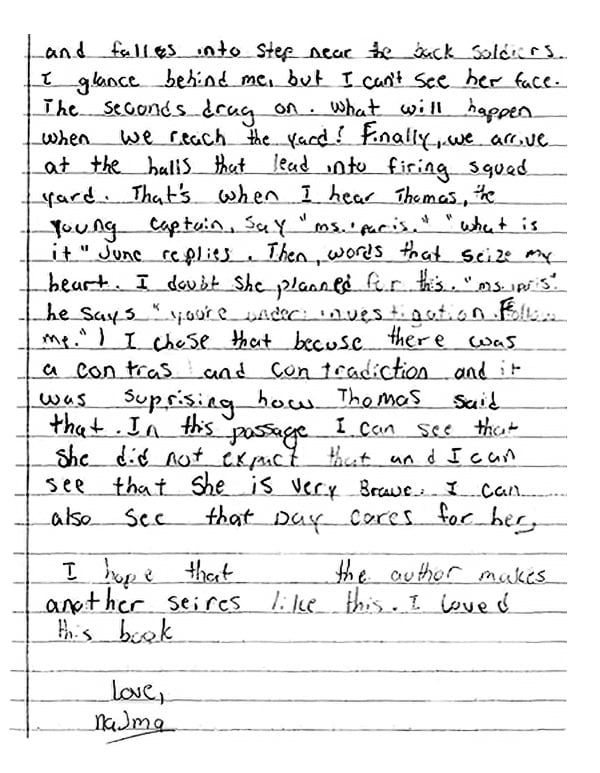 and falles into step near the back soldiers.
I glance behind me, but I can't see her face.
The seconds drag on. What will happen
when we reach the yard? Finally, we arrive
at the halls that lead into firing squad
yard. That's when I hear Thomas, the
young captain, say "ms. iparis." "what is
it" June replies. Then, words that seize my
heart. I doubt she planned for this. "ms. iparis"
he says "you're under investigation. Follow
me.") I chose that becuse there was
a contras and contradiction and it
was suprising how Thomas said
that. In this passage I can see that
she did not expact that and I can
see that she is very Brave. I can
also see that Day cares for her.
I hope that the author makes
another seires like this. I loved
this book
Love,
Najma